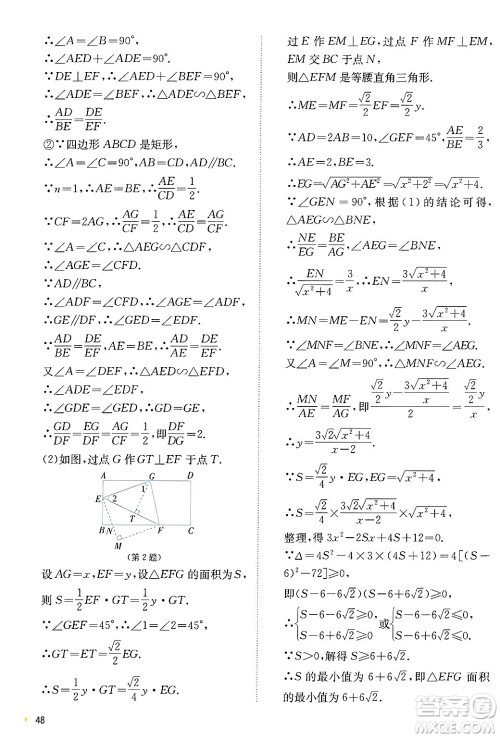 ∴∠A=∠B=90°,
∴∠AED+∠ADE=90°.
∵DE⊥EF,∴∠AED+∠BEF=90°.
∴∠ADE=∠BEF.∴△ADE∽△BEF.
∴AD/BE=DE/EF.
②∵四边形 ABCD 是矩形,
∴∠A=∠C=90°,∴△AED∽△CDF,∴AE/CF=AD/CD.
∵n=1,∴AE=BE.∴AE/CD=1/2.
∵CF=2AG,∴AG/CF=1/2.∴AE/CD=AG/CF.
∵∠A=∠C,∴△AEG∽△CDF.
∴∠AGE=∠CFD.
∵AD∥BC,
∴∠ADF=∠CFD.∴∠AGE=∠ADF.
∴GE∥DF.∴∠GED=∠EDF.
∵AD/BE=DE/EF,AE=BE,∴AD/AE=DE/EF.
又∵∠A=∠DEF=90°,∴△ADE∽△EDF.
∴∠ADE=∠EDF.∴∠GED=∠ADE.
∴GD/DF=GE/DF=AG/DF=1/2.∴DF/DG=2.
(2)如图,过点 G 作 GT⊥EF 于点 T.
A G D
E 2 1
T
B N F C
M
(第 2 题)
设 AG=x,EF=y,△EFG 的面积为 S,
则 S=1/2 EF·GT=1/2 y·GT.
∵∠GEF=45°,
∴GT=ET=√2/2 EG.
∴S=1/2 y·GT=√2/4 y·EG.
过 E 作 EM⊥EG,过点 F 作 FM⊥EM 交 BC 于点 N,
则△EFM 是等腰直角三角形.
∴ME=MF=√2/2 EF=√2/2 y.
∵AD=2AE=4,∠GEF=45°,AE/BE=2/3,
∴AE=2,BE=3.
∴EG=√(AG²+AE²)=√(x²+2²)=√(x²+4).
∵∠GEN=90°,根据(1)的结论可得,
∠AEG=∠BNE,∴△AEG∽△BNE,
∴NE/EG=BE/AG,
∴EN/√(x²+4)=3/x.∴EN=3√(x²+4)/x.
∴MN=ME-EN=√2/2 y-3√(x²+4)/x.
∵∠MNF=∠BNE,∴∠MNF=∠AEG.
又∵∠M=∠A=90°,∴△MNF∽△AEG.
∴MN/AE=MF/AG,即(√2/2 y-3√(x²+4)/x)/2=(√2/2 y)/x.
∴y=3√2√(x²+4)/(x-2).
∵S=√2/4 y·EG,
∴S=√2/4×3√2√(x²+4)/(x-2)×√(x²+4),
整理,得 3x²-2Sx+4S+12=0.
∵Δ=4S²-4×3×(4S+12)=4[(S-6)²-72]≥0,
即(S-6-6√2)(S-6+6√2)≥0,
∴{S-6-6√2≥0, S-6+6√2≥0 或{S-6-6√2≤0, S-6+6√2≤0.
∵S>0,∴S≥6+6√2,即△EFM 面积
的最小值为 6+6√2.
48